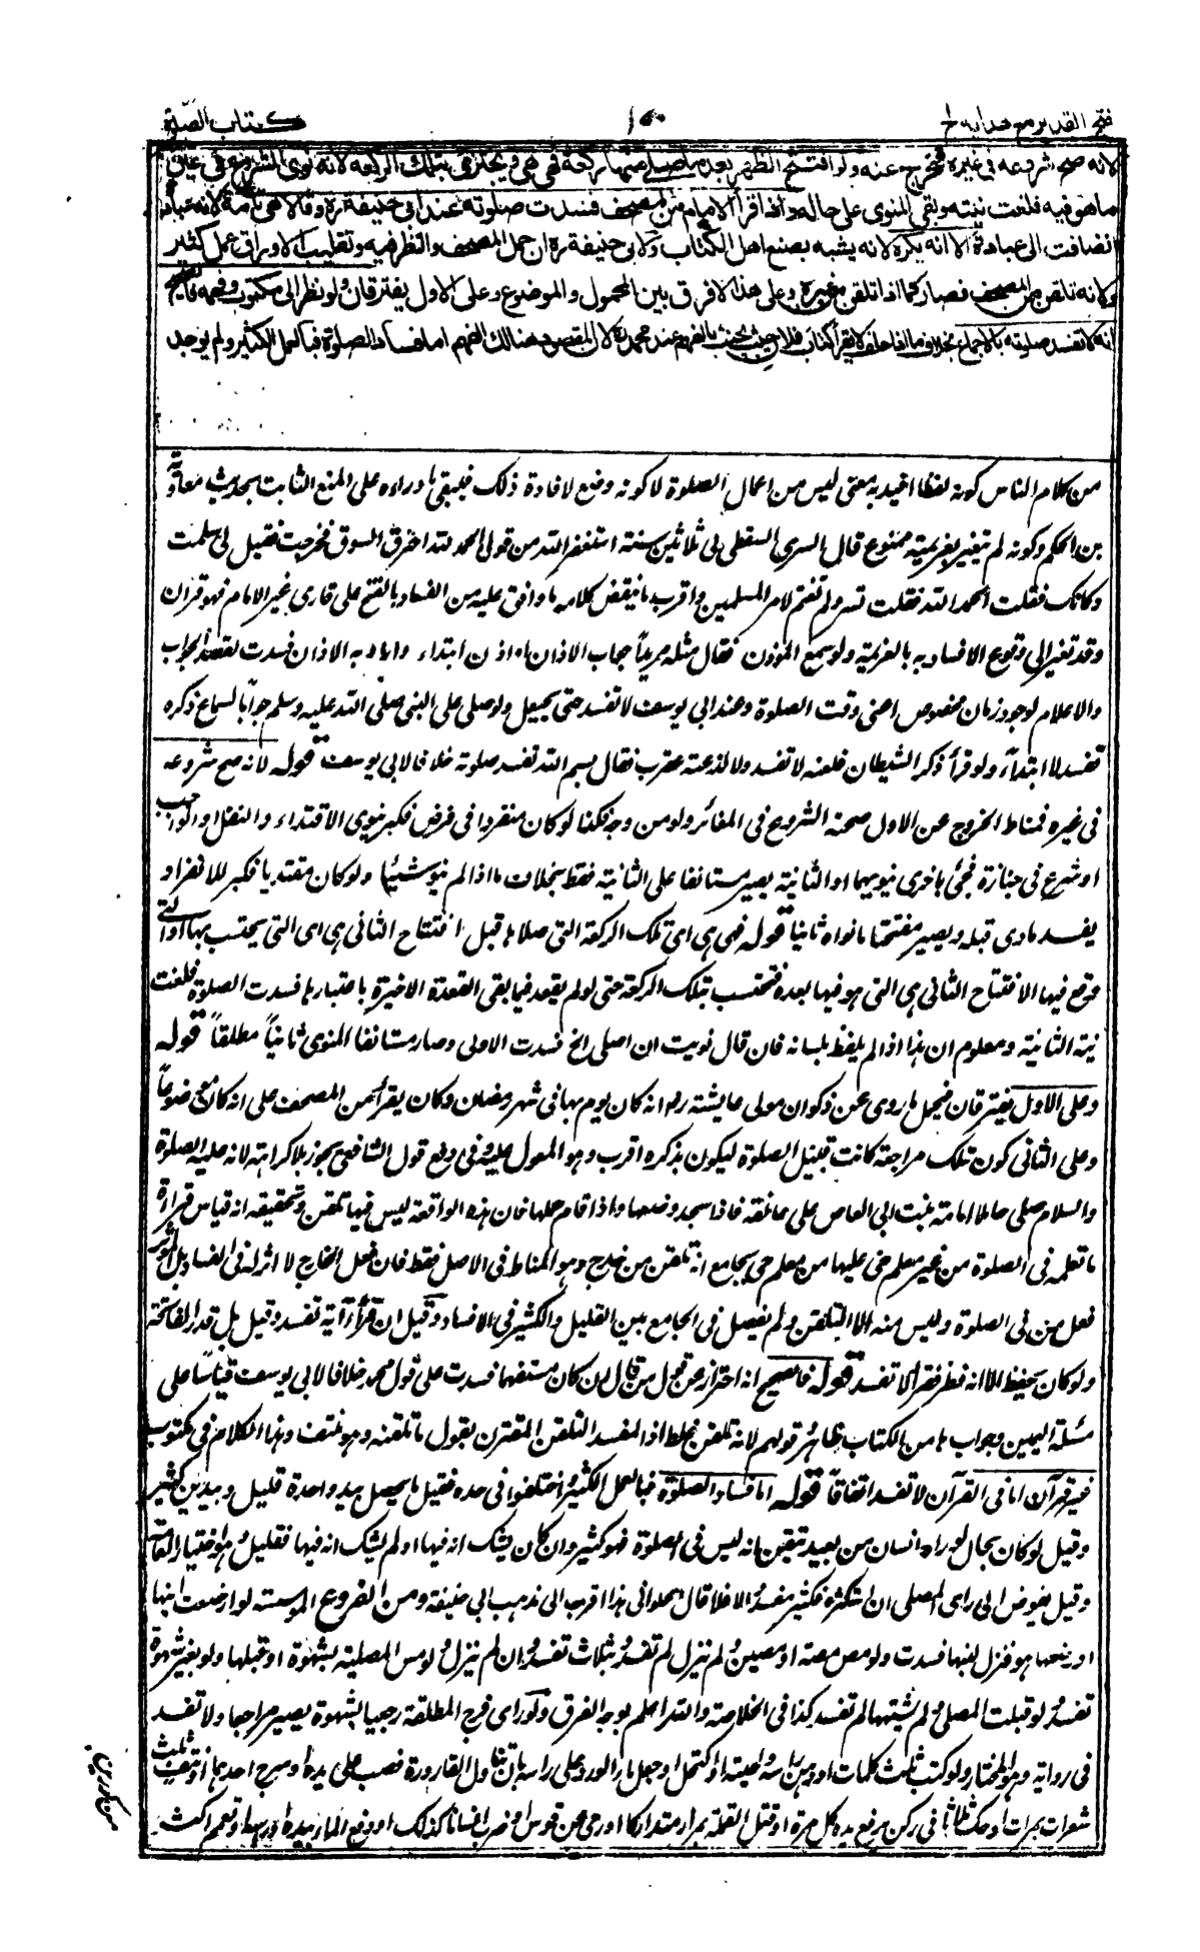 فتح القدير مع هدايه ج ١
١٥٠
كتاب الصلوة
لانه صح شروعه فى غيره فيخرج عنه ولو افتتح الظهر بعد ما صلى منها ركعة فهى هى ويجتزى بتلك الركعة لانه نوى الشروع فى عين
ما هو فيه فلغت نيته وبقى المنوى على حاله واذا قرأ الامام من المصحف فسدت صلوته عند ابى حنيفة رح وقالا هى تامة لانه عبادة
انضافت الى عبادة الا انه يكره لانه يشبه بصنع اهل الكتاب ولابى حنيفة رح ان حمل المصحف والنظر فيه وتقليب الاوراق عمل كثير
ولانه تلقن من المصحف فصار كما اذا تلقن من غيره وعلى هذا لا فرق بين المحمول والموضوع وعلى الاول يفترقان ولو نظر الى مكتوب وفهمه فالصحيح
انه لا تفسد صلوته بالاجماع بخلاف ما اذا حلف لا يقرأ كتاب فلان حيث يحنث بالفهم عند محمد رح لان المقصود هنالك الفهم اما فساد الصلوة فبالعمل الكثير ولم يوجد
من كلام الناس كونه لفظا افيد به معنى ليس من اعمال الصلوة لا كونه وضع لافادة ذلك فيبقى ما وراءه على المنع الثابت بحديث معاوية
بن الحكم وكونه لم تغير بعزيمته ممنوع قال السرى السقطى لى ثلاثين سنة استغفر الله من قولى الحمد لله احترق السوق فخرجت فقيل لى سلمت
دكانك فقلت الحمد لله فقلت تسر ولم تغتم لامر المسلمين واقرب ما ينقض كلامه ما وافق عليه من الفساد بالفتح على قارى غير الامام فهو قرآن
وقد تغير الى وقوع الافساد به بالعزيمة ولو سمع المؤذن فقال مثله مريدا جواب الاذان او اذن ابتداء واراد به الاذان فسدت لقصد الجواب
والاعلام لوجود زمان مخصوص اعنى وقت الصلوة وعند ابى يوسف لا تفسد حتى يحيعل ولو صلى على النبى صلى الله عليه وسلم جوابا لسماع ذكره
تفسد لا ابتداء ولو قرأ ذكر الشيطان فلعنه لا تفسد ولو لذعته عقرب فقال بسم الله تفسد صلوته خلافا لابى يوسف قوله لانه صح شروعه
فى غيره فمناط الخروج عن الاول صحة الشروع فى المغائر ولو من وجه فلذا لو كان منفردا فى فرض فكبر ينوى الاقتداء والنفل او الواجب
او شرع فى جنازة فجئ باخرى فنويهما او الثانية يصير مستانفا على الثانية فقط بخلاف ما اذا لم ينو شيئا ولو كان مقتديا فكبر للانفراد
يفسد ما ادى قبله ويصير مفتتحا ما نواه ثانيا قوله فهى هى اى تلك الركعة التى صلاها قبل افتتاح الثانى هى اى التى يحتسب بها او التى
وقع فيها الافتتاح الثانى هى التى هو فيها بعده فتحتسب بتلك الركعة حتى لو لم يقعد فيما بقى القعدة الاخيرة باعتبارها فسدت الصلوة فلغت
نية الثانية ومعلوم ان هذا اذا لم يلفظ بلسانه فان قال نويت ان اصلى الخ فسدت الاولى وصار مستانفا المنوى ثانيا مطلقا قوله
وعلى الاول يفترقان فيحمل ما روى عن ذكوان مولى عايشة رض انه كان يوم بها فى شهر رمضان وكان يقرأ من المصحف على انه كان موضوعا
وعلى الثانى كون تلك مراجعة كانت قبيل الصلوة ليكون بذكره اقرب وهو المعول عليه فى دفع قول الشافعى يجوز بلا كراهة لانه عليه الصلوة
والسلام صلى حاملا امامة بنت ابى العاص على عاتقه فاذا سجد وضعها واذا قام حملها فان هذه الواقعة ليس فيها تلقن وتحقيقه انه قياس قراءة
ما تعلمه فى الصلوة من غير معلم حى عليها من معلم حى بجامع انه تلقن من خارج وهو المناط فى الاصل فقط فان فعل الخارج لا اثر له فى الفساد بل المؤثر
فعل من فى الصلوة وليس منه الا التلقن ولم يفصل فى الجامع بين القليل والكثير فى الافساد وقيل ان قرأ آية تفسد وقيل بل قدر الفاتحة
ولو كان يحفظ الا انه نظر فقرأ لا تفسد قوله فالصحيح انه احتراز عن قول من قال ان كان مستفهما فسدت على قول محمد خلافا لابى يوسف قياسا على
مسئلة اليمين وجوابها من الكتاب ظاهر قولهم لانه تلقن غلط اذ المفسد التلقن المقترن بقول ما تلقنه وهو منتف وهذا الكلام فى مكتوب
غير قرآن اما فى القرآن لا تفسد اتفاقا قوله اما فساد الصلوة فبالعمل الكثير اختلفوا فى حده فقيل ما يحصل بيد واحدة قليل وبيدين كثير
وقيل لو كان بحال لو راه انسان من بعيد تيقن انه ليس فى الصلوة فهو كثير وان كان يشك انه فيها او لم يشك انه فيها فقليل وهو اختيار العامة
وقيل يفوض الى راى المصلى ان استكثره فكثير مفسد والا فلا قال الحلوانى هذا اقرب الى مذهب ابى حنيفة ومن الفروع المؤسسة لو ارضعت ابنها
او رضعها هو فنزل لبنها فسدت ولو مص مصة او مصتين ولم ينزل لم تفسد وبثلاث تفسد وان لم ينزل ولو مس المصلية بشهوة او قبلها ولو بغير شهوة
تفسد ولو قبلت المصلى ولم يشتهها لم تفسد كذا فى الخلاصة والله اعلم بوجه الفرق ولو راى فرج المطلقة رجعيا بشهوة يصير مراجعا ولا تفسد
فى رواية وهو المختار ولو كتب ثلث كلمات او دهن راسه ولحيته او اكتحل او جعل ماء الورد على راسه بان تناول القارورة فصب على يده او سرح احدهما او نتف ثلث
شعرات بمرات او حك ثلاثا فى ركن يرفع يده كل مرة او قتل القملة بمرار متداركا او رمى عن قوس او ضرب انسانا كذلك او دفع المار بيده او راسه او تعمم اكثر